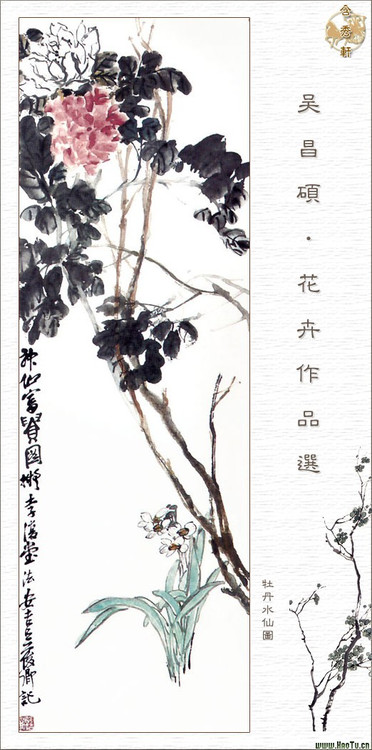 吴昌碩·花卉作品選
神仙富貴圖擬李復堂法安吉吳俊卿記
牡丹水仙圖
www.HaoTu.cn